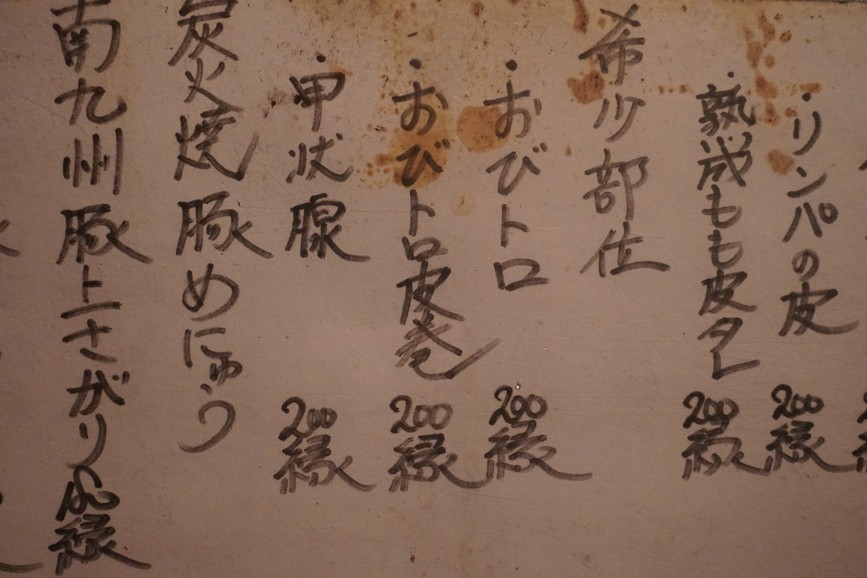 ・リンパの皮 200縁
・熟成もも皮タレ 200縁
希少部位
・おびトロ 200縁
・おびトロ皮巻 200縁
・甲状腺 200縁
炭火焼豚めにゅう
南九州豚上さがり 縁